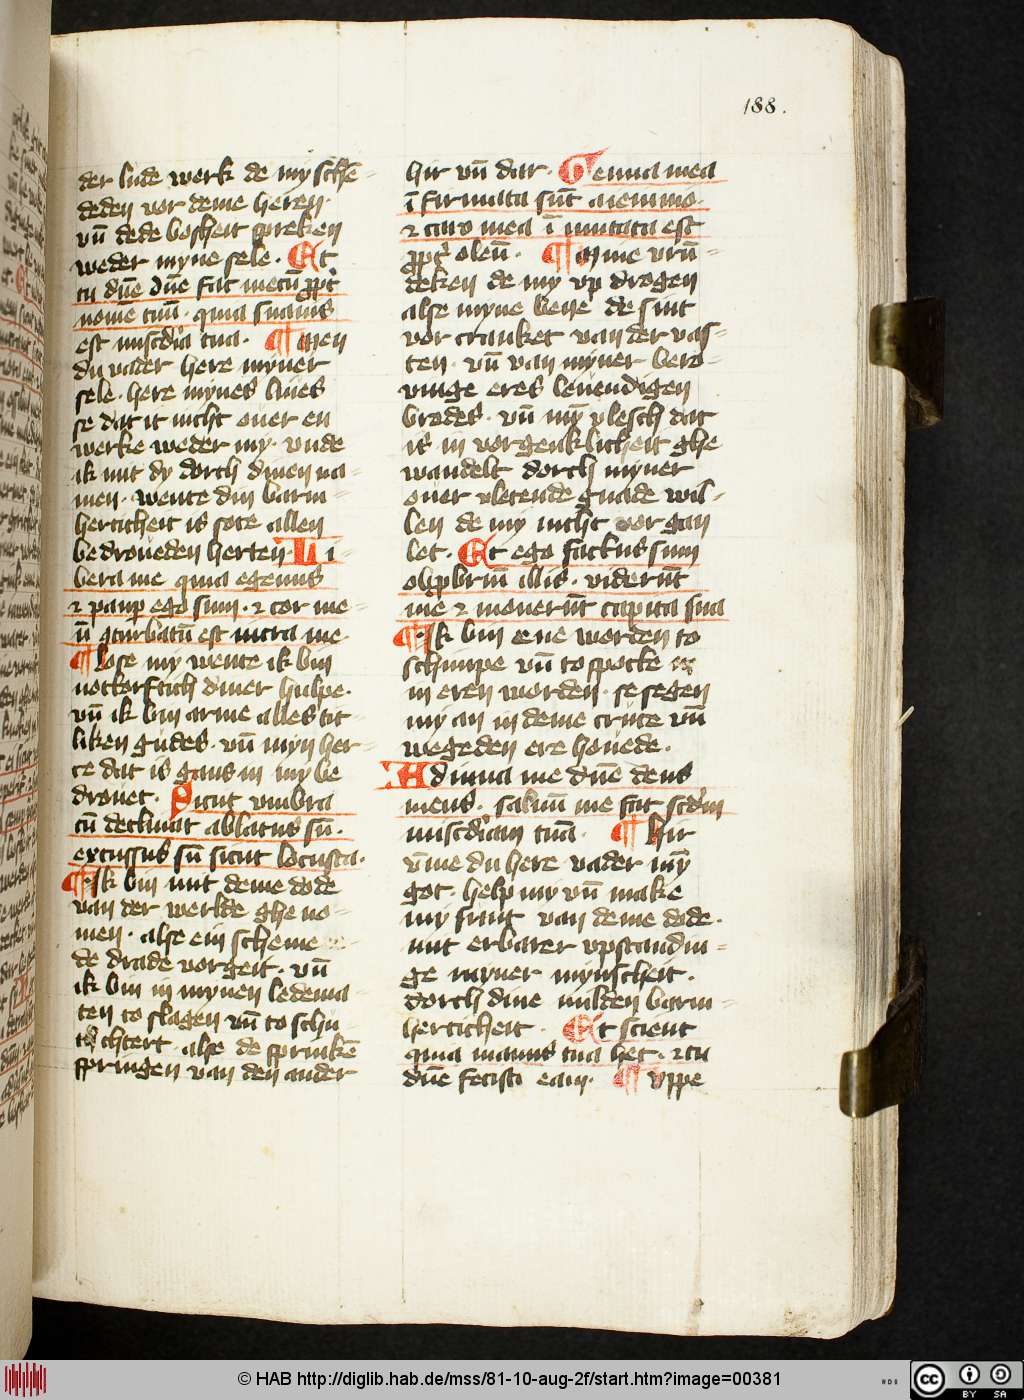 188.
der lude werk de my schē-
deden vor deme heren.
vn̄ dede bosheit spreken
weder myne sele. Et
tu dn̄e dn̄e fac mecū ꝓpt̾
nomē tuū. quia suauis
est mīscd̾ia tua. ¶ men
du vader here myner
sele. here mynes liues
se dat it nicht ouer en
werke weder my. vnde
ik mit dy dorch dinen na-
men. wente din barm-
herticheit is sote allen
bedroueden herten. Li-
bera me quia egenus
⁊ paup̲ ego sum. ⁊ cor me-
ū ꝯturbatū est intra me.
¶ Lose my wente ik bin
nottorftich diner hulpe.
vn̄ ik bin arme alles tit-
liken gudes. vn̄ myn her-
te dat is gans in my be
drouet. Sicut vmbra
cū declinat ablatus sū.
excussus sū sicut locusta.
¶ Ik bin mit deme dode
van der werlde ghe no-
men. alse ein scheme
de drade vorgeit. vn̄
ik bin in mynen ledema-
ten to slagen vn̄ to schu
chtert. alse de sprinkē
springen van den ander
hir vn̄ dar. Genua mea
ī firmata sūt a ieiunio.
⁊ caro mea ī mutata est
ꝓpt̾ oleū. ¶ Mine vrū-
deken de my vp drogen
alse myne bene de sint
vor cranket van der vas-
ten. vn̄ van myner bero-
uinge eres leuendigen
brodes. vn̄ my̅ vlesch dat
is in vorgenklicheit ghe
wandelt dorch myner
ouer vletende gnade wil-
len de my nicht vor gan
let. Et ego factus sum
obp̲briū illis. viderūt
me ⁊ mouerūt capita sua
¶ Ik bin e ne worden to
schimpe vn̄ to spotte
in eren worden. se segen
my an in deme cruce vn̄
wegeden ere houede.
Adiuua me dn̄e deus
meus. saluū me fac scd̾m
mīscd̾iam tuā. ¶ Hir
vm̄e du here vader my̅
got. help my vn̄ make
my sunt van deme dode.
mit erbarer vpstandin-
ge myner mynscheit.
dorch dine milden barm-
herticheit. Et scient
quia manus tua hec. ⁊ tu
dn̄e fecisti eam. ¶ vppe
© HAB http://diglib.hab.de/mss/81-10-aug-2f/start.htm?image=00381
cc BY SA